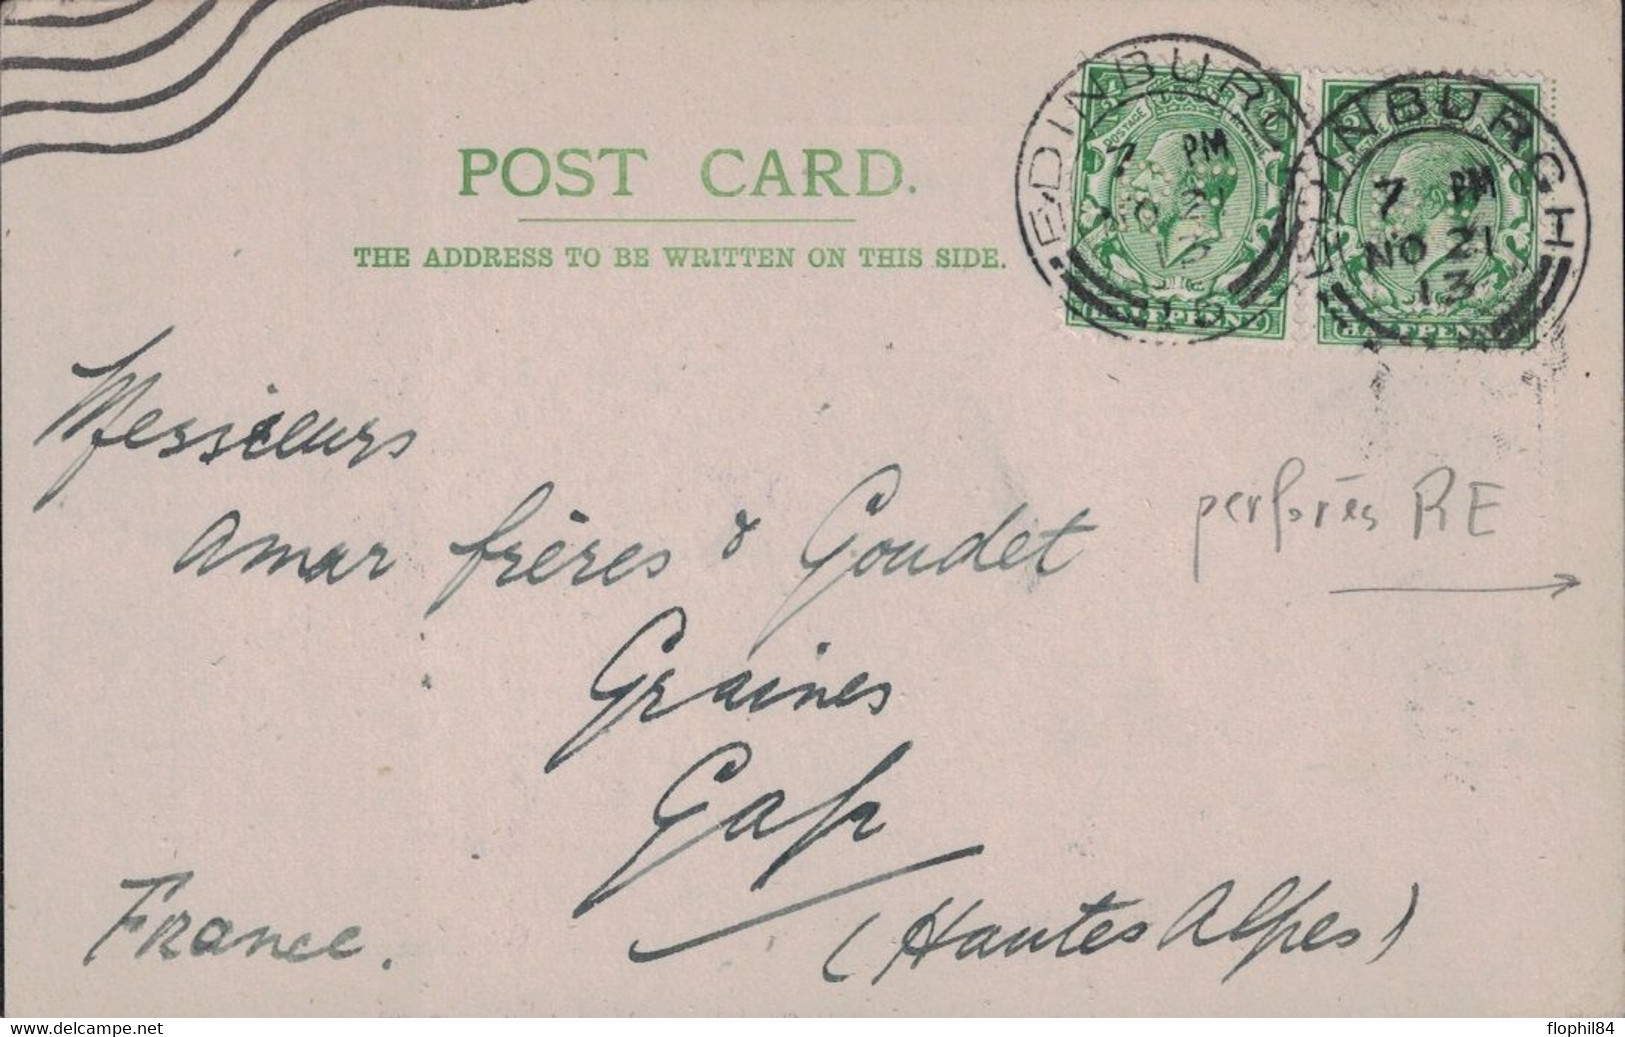 POST CARD.
THE ADDRESS TO BE WRITTEN ON THIS SIDE.
EDINBURGH
7 PM
NO 21
13
EDINBURGH
7 PM
NO 21
13
POSTAGE
HALFPENNY
HALFPENNY
Messieurs
Amar frères & Goudet
perforés RE
Graines
Gap
(Hautes Alpes)
France.
www.delcampe.net
flophil84